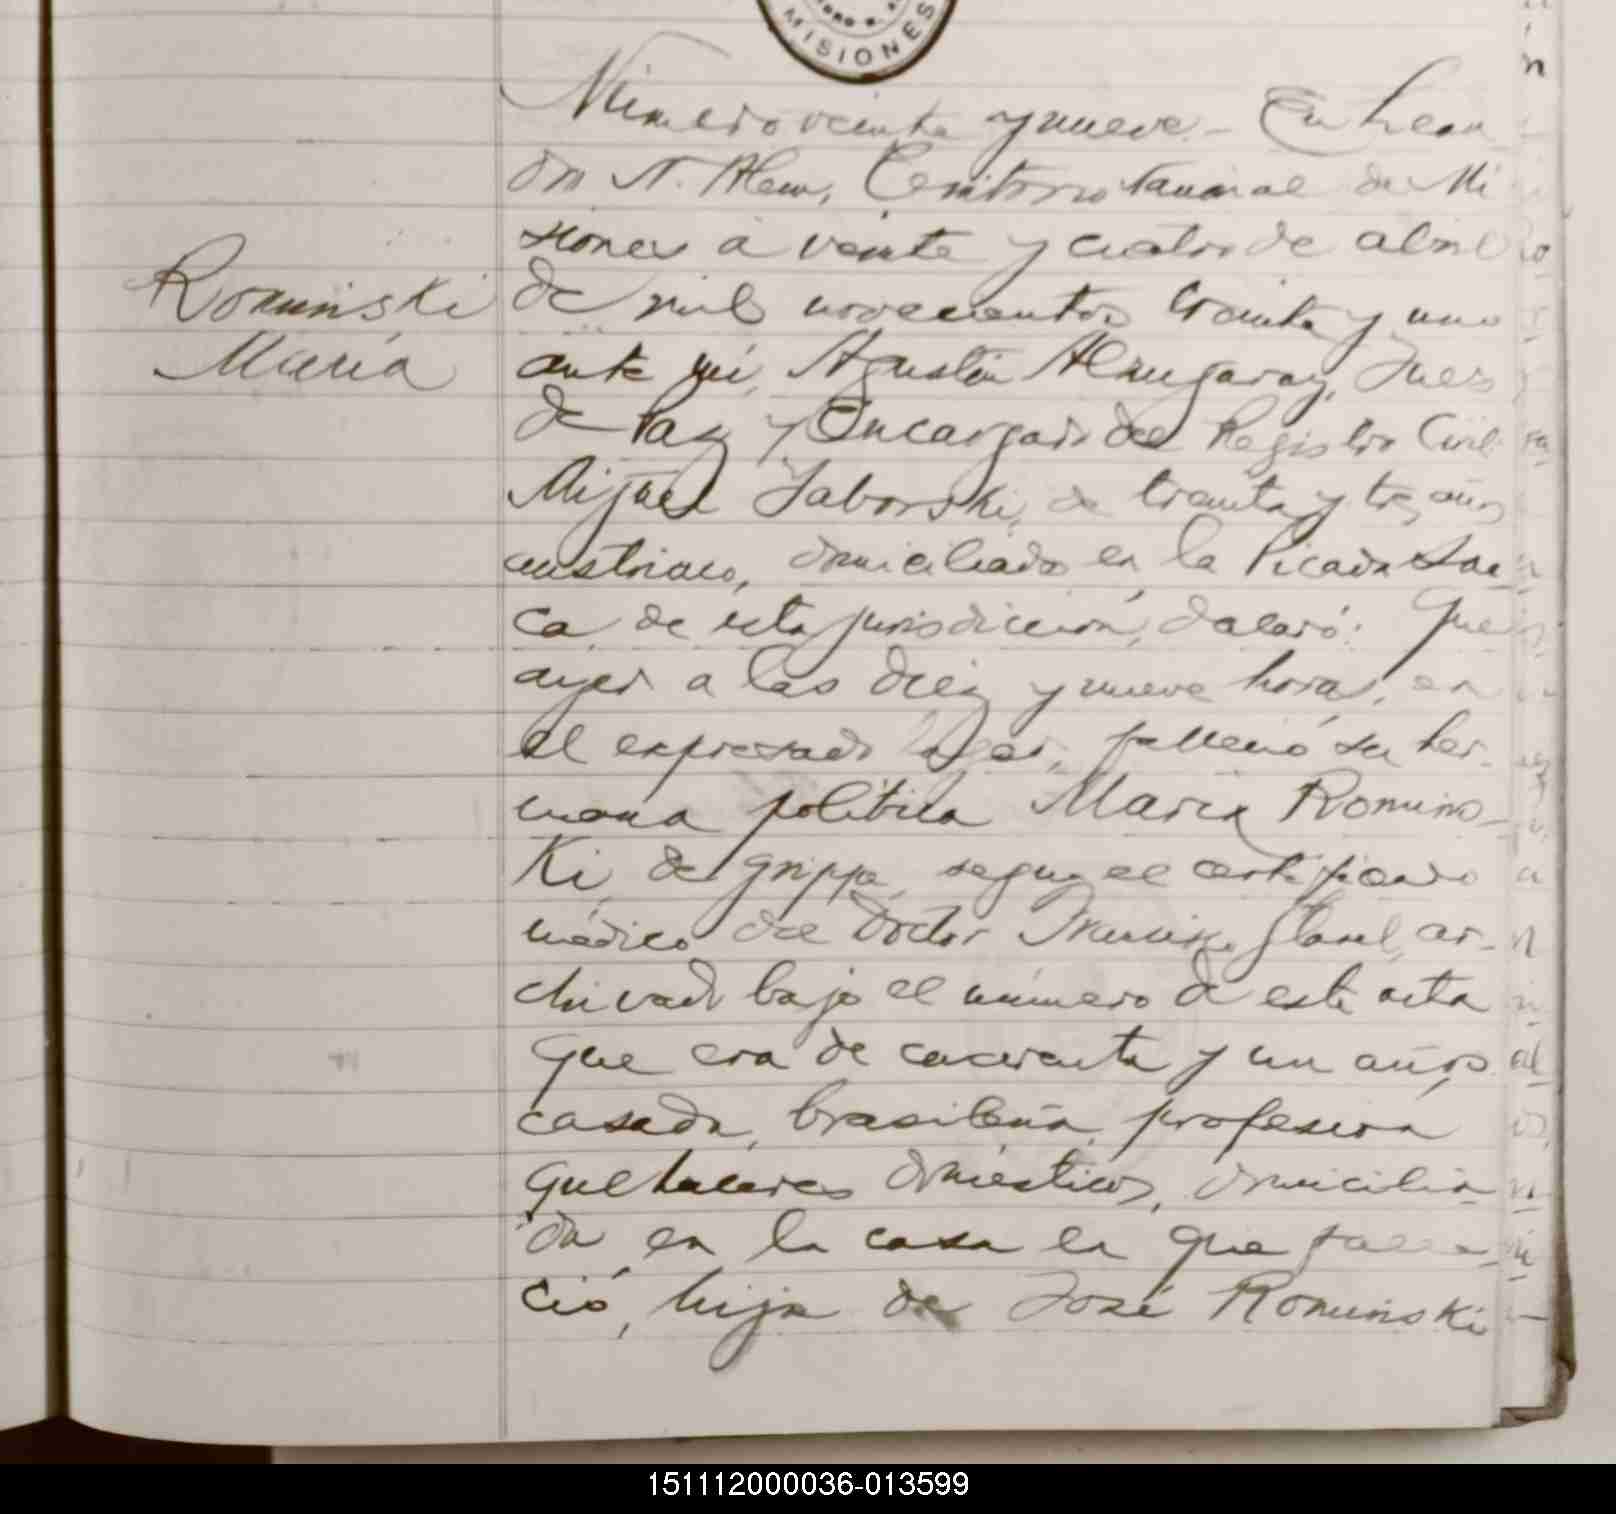 MISIONES
Número veinte y nueve - En Lean
dro N. Alem, Territorio Nacional de Mi
siones a veinte y cuatro de abril
Rominski
María
de mil novecientos treinta y uno
ante mí, Agustín Alzugaray, Juez
de Paz y Encargado del Registro Civil
Miguel Saborski, de treinta y tres años
austriaco, domiciliado en la Picada
ca de esta jurisdicción, declaró: Que
ayer a las diez y nueve horas, en
el expresado lugar, falleció su her-
mana política María Romins-
ki, de grippe, segun el certificado
médico del doctor ar-
chivado bajo el número de este acta
que era de cuarenta y un años
casada, brasileña, profesion
quehaceres domésticos, domicilia
da en la casa en que falle-
ció, hija de José Rominski
151112000036-013599